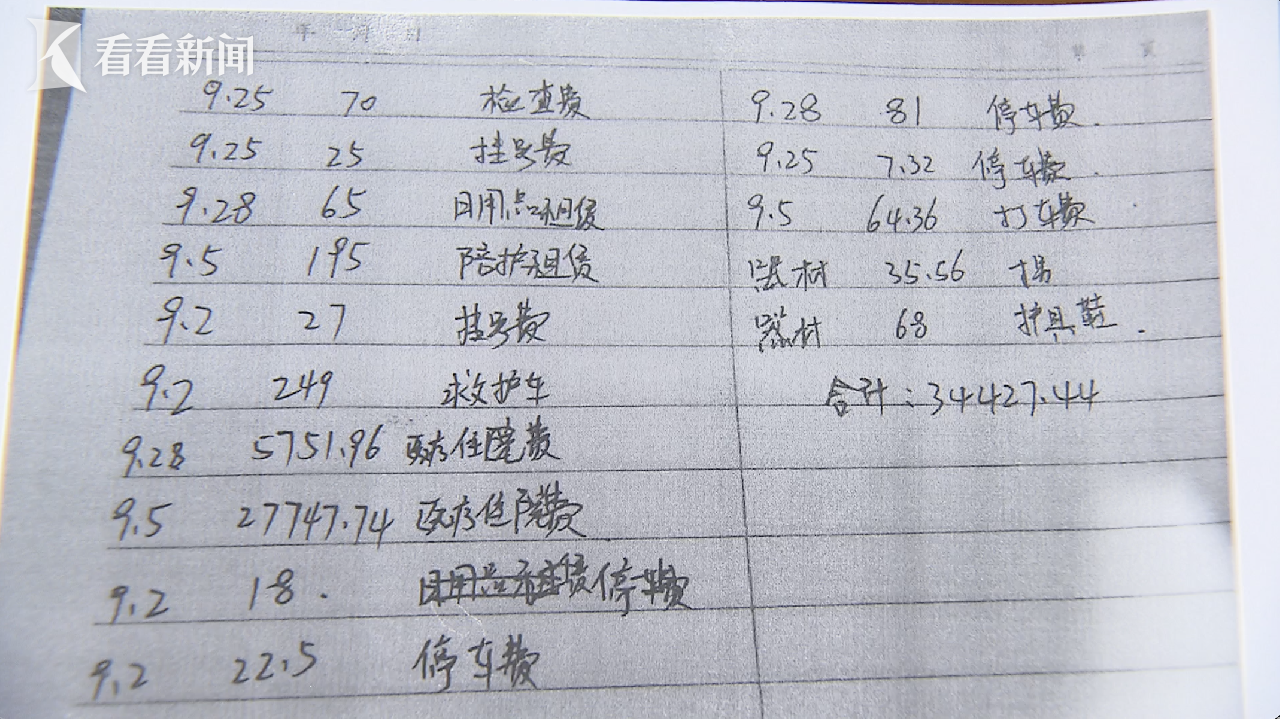 看看新闻
年 月 日
第 页
9.25 70 检查费
9.25 25 挂号费
9.28 65 日用品租赁
9.5 195 陪护租赁
9.2 27 挂号费
9.2 249 救护车
9.28 5751.96 医疗住院费
9.5 27747.74 医疗住院费
9.2 18. 日用品租赁停车费
9.2 22.5 停车费
9.28 81 停车费.
9.25 7.32 停车费.
9.5 64.36 打车费
器材 35.56 拐
器材 68 护具鞋.
合计:34427.44